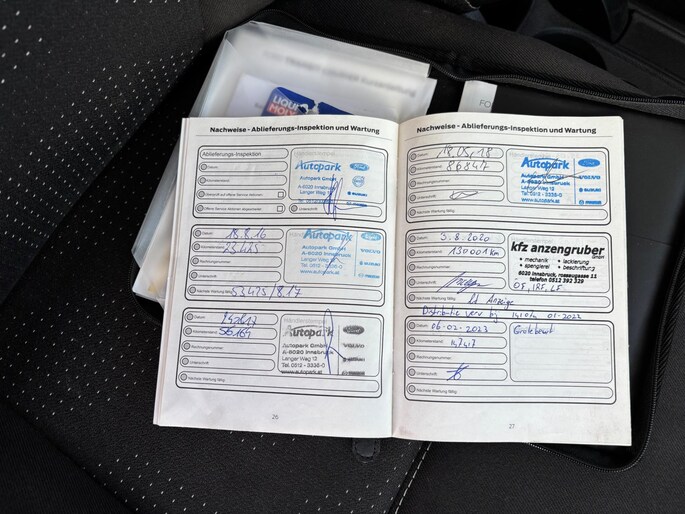 LIQUI
MOLY
FO
Nachweise - Ablieferungs-Inspektion und Wartung
Ablieferungs-Inspektion
Datum
Kilometerstand
Unterschrift
Autopark
Ford
Autopark GmbH
A-6020 Innsbruck
Langer Weg 12
SUZUKI
www.autopark.at
Datum 18.8.16
Kilometerstand 23425
Rechnungsnummer
Unterschrift
Nächste Wartung fällig 53425/8.17
Autopark
Autopark GmbH
A-6020 Innsbruck
Langer Weg 12
SUZUKI
www.autopark.at
Datum
Kilometerstand 56161
Rechnungsnummer
Unterschrift
Nächste Wartung fällig
Autopark
Ford
Autopark GmbH
VOLVO
A-6020 Innsbruck
Langer Weg 12
Tel. 0512 - 3336-0
www.autopark.at
26
Nachweise - Ablieferungs-Inspektion und Wartung
Datum 18.05.18
Kilometerstand 86847
Rechnungsnummer
Unterschrift
Nächste Wartung fällig
Autopark
Ford
Autopark GmbH
A-6020 Innsbruck
Langer Weg 12
SUZUKI
Tel. 0512 - 3336-0
www.autopark.at
Datum 3.8.2020
Kilometerstand 130001 Km
Rechnungsnummer
Unterschrift
Nächste Wartung fällig
kfz anzengruber
GmbH
• mechanik • lackierung
• spenglerei • beschriftung
6020 Innsbruck, rossaugasse 11
telefon 0512 392 329
OF, IRF, LF
Anzeige
01-2023
Datum 06-02-2023
Kilometerstand 147417
Rechnungsnummer
Unterschrift
Nächste Wartung fällig
27